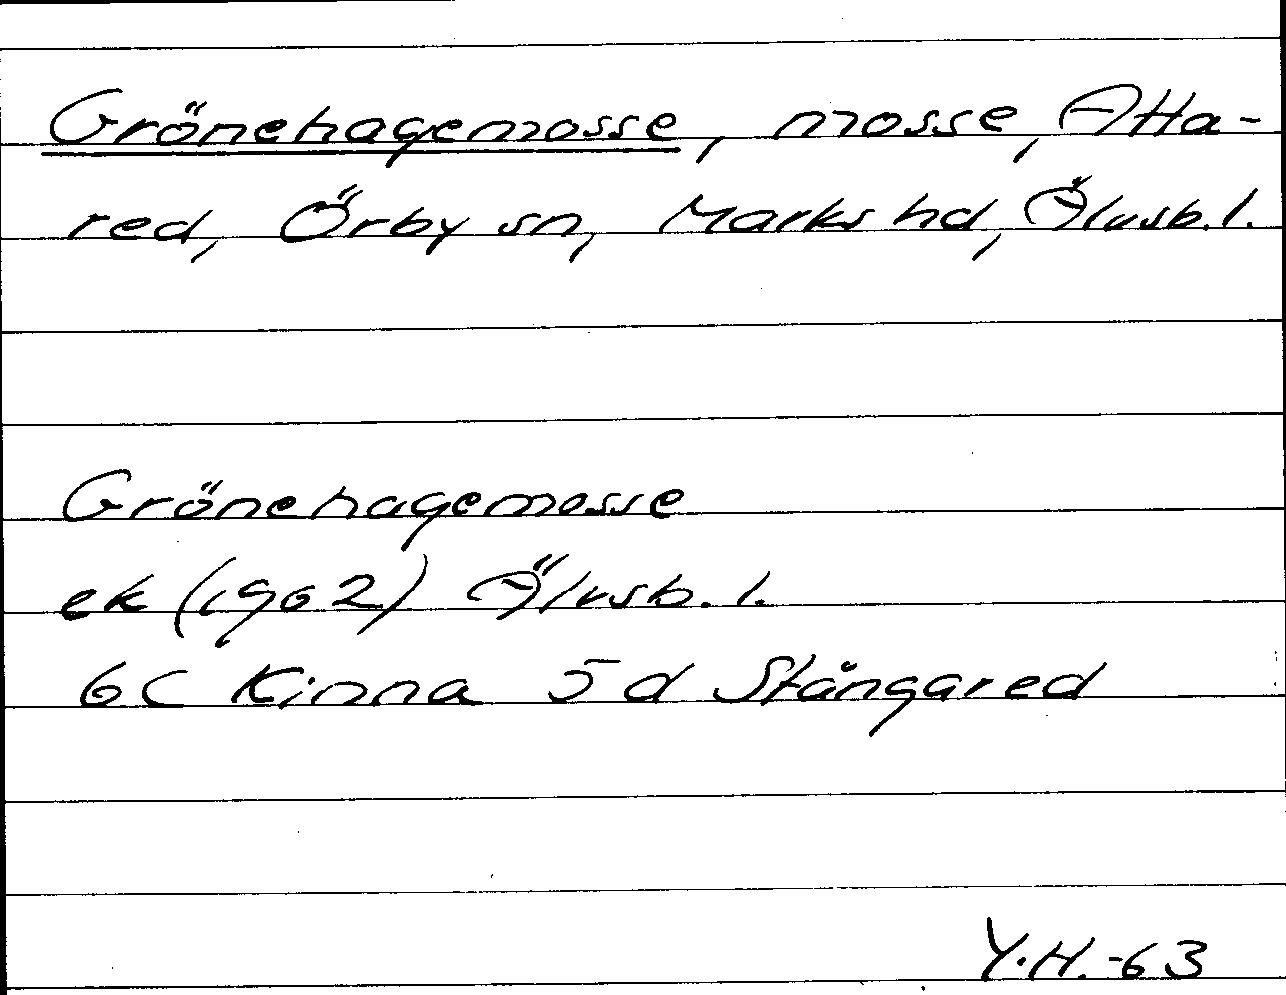 Grönehagemosse, mosse, Atta-
red, Örby sn, Marks hd, Älvsb. l.
Grönehagemosse
ek (1962) Älvsb. l.
6C Kinna 5d Stångared
Y.H.-63